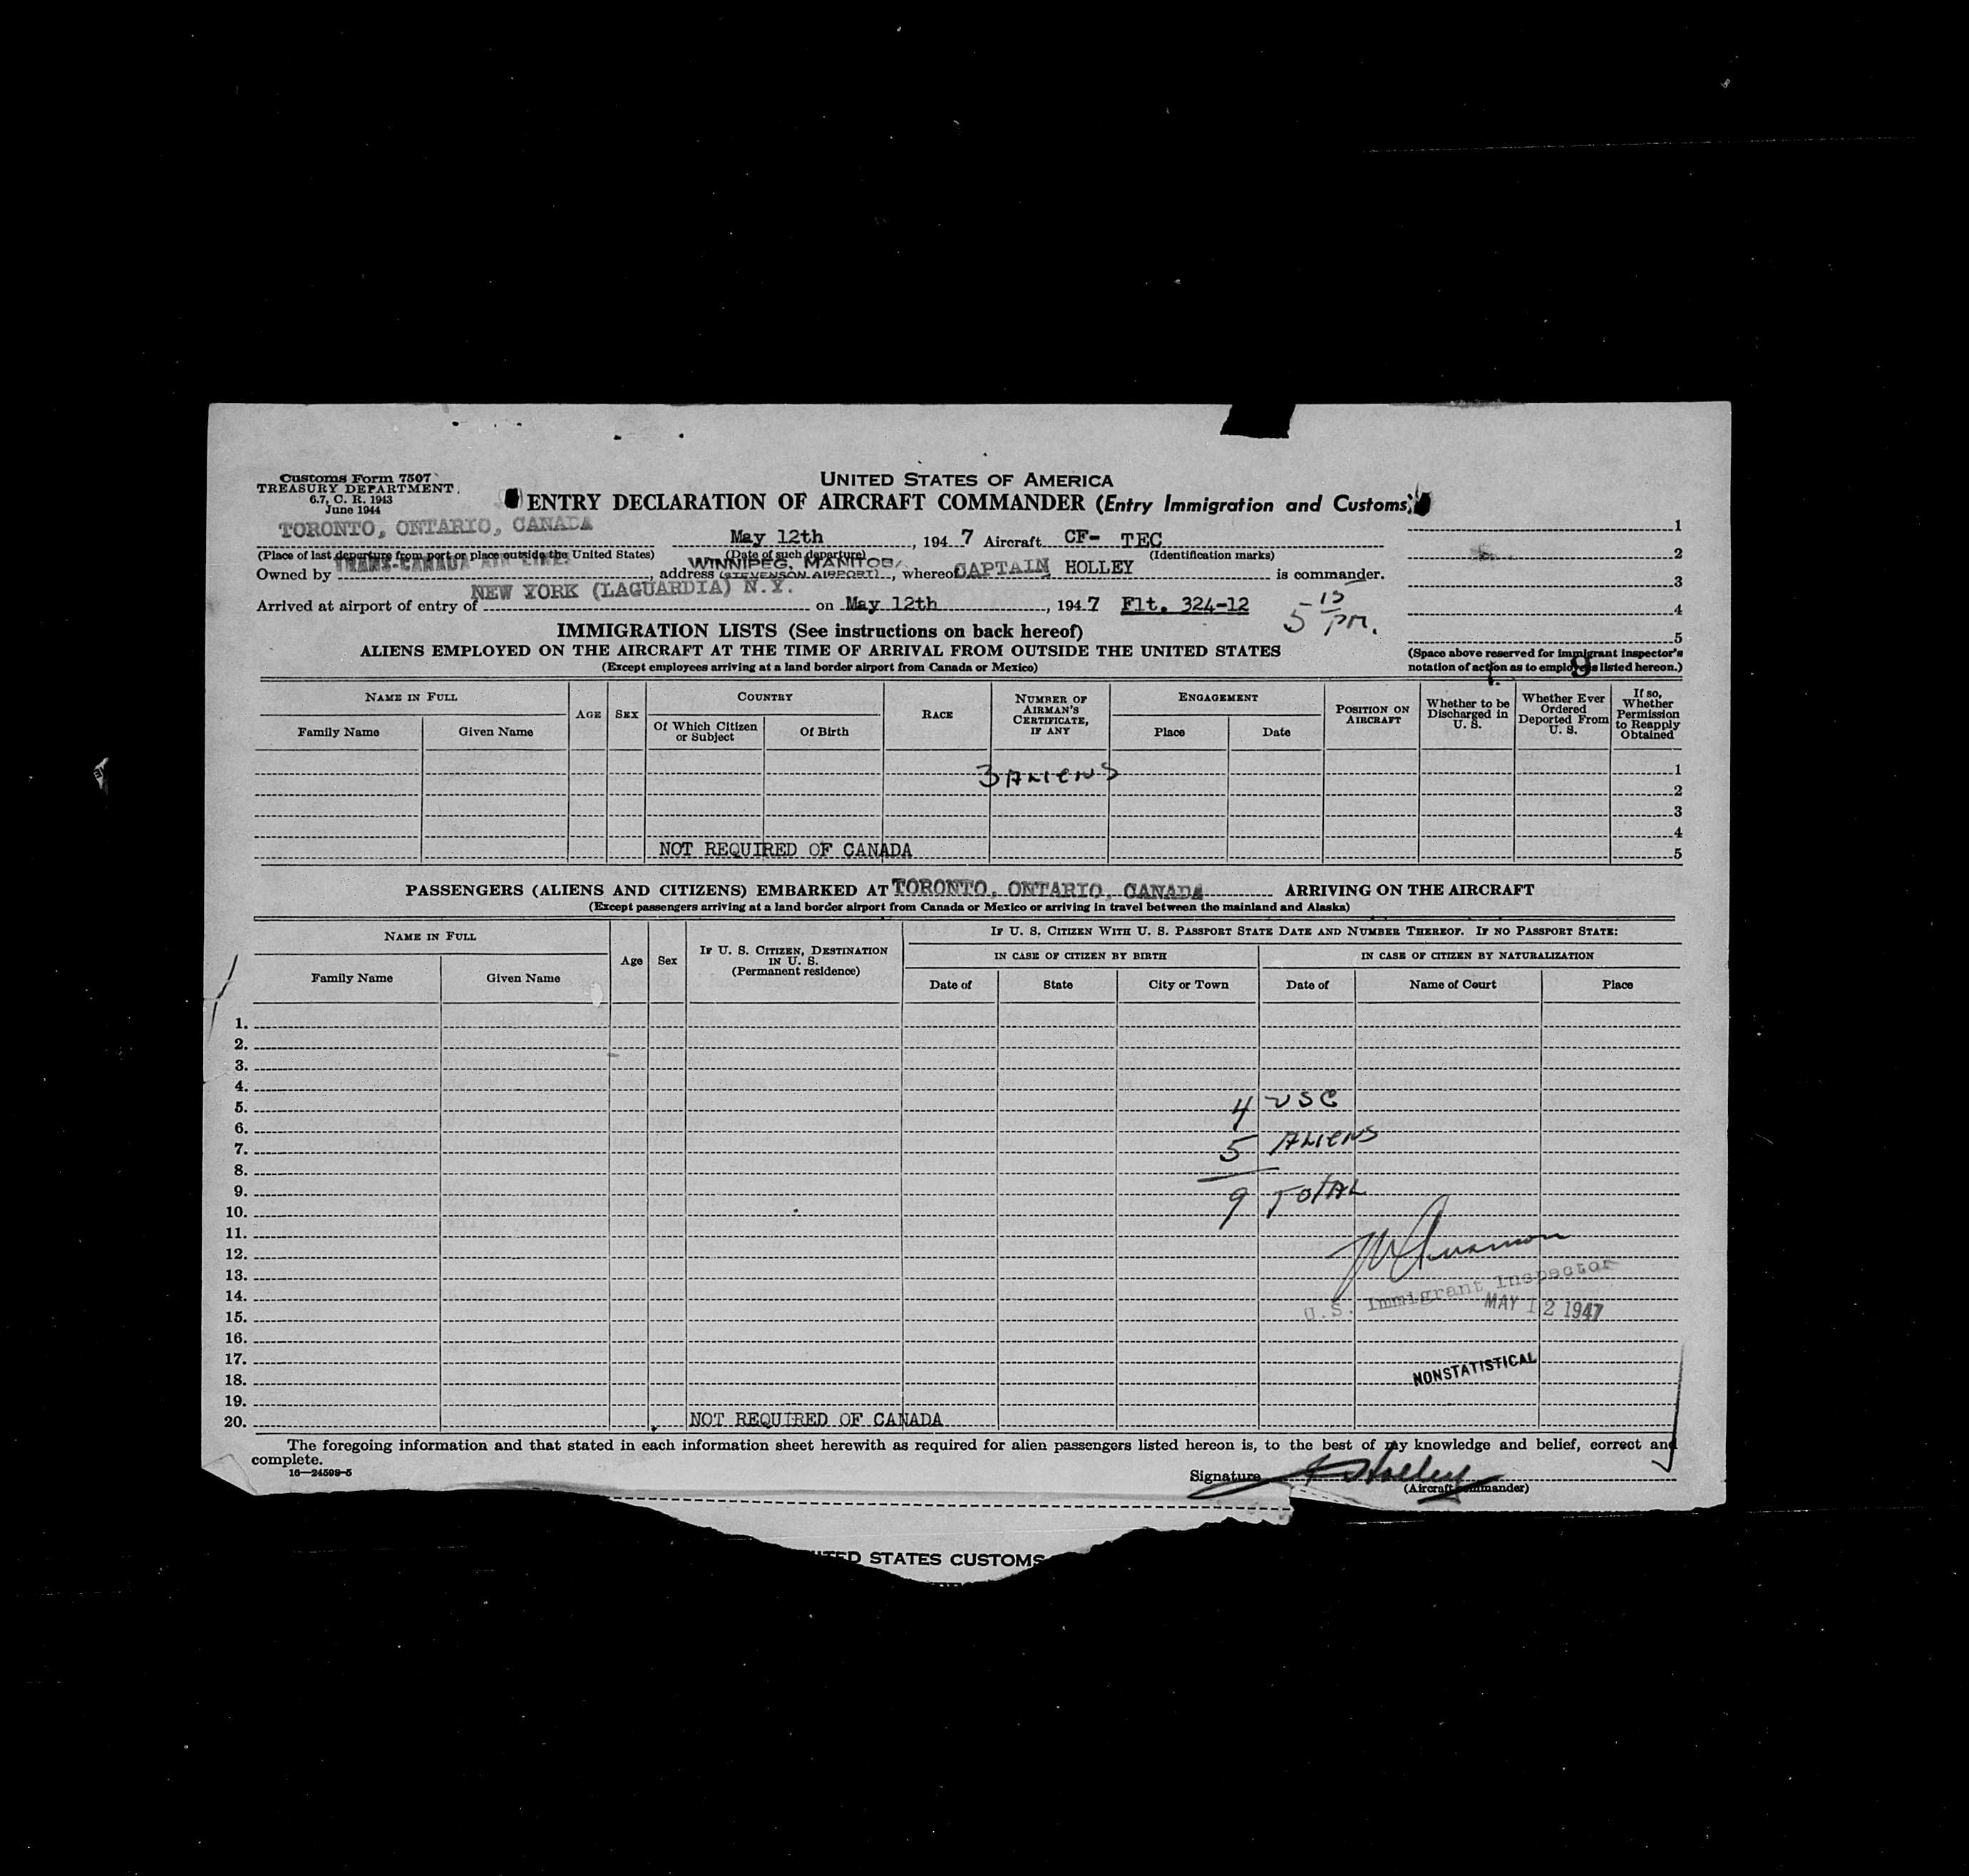 Customs Form 7507
TREASURY DEPARTMENT
6.7, C. R. 1943
June 1944
UNITED STATES OF AMERICA
ENTRY DECLARATION OF AIRCRAFT COMMANDER (Entry Immigration and Customs)
TORONTO, ONTARIO, CANADA May 12th, 1947 Aircraft CF- TEC
(Place of last departure from port or place outside the United States) (Date of such departure) (Identification marks)
Owned by TRANS-CANADA AIR LINES, address WINNIPEG, MANITOBA (STEVENSON AIRPORT), whereof CAPTAIN HOLLEY is commander.
Arrived at airport of entry of NEW YORK (LAGUARDIA) N.Y. on May 12th, 1947 Flt. 324-12 5 15 PM.
1
2
3
4
5
(Space above reserved for immigrant inspector's
notation of action as to employees listed hereon.)
9
IMMIGRATION LISTS (See instructions on back hereof)
ALIENS EMPLOYED ON THE AIRCRAFT AT THE TIME OF ARRIVAL FROM OUTSIDE THE UNITED STATES
(Except employees arriving at a land border airport from Canada or Mexico)
NAME IN FULL
Family Name Given Name
AGE SEX
COUNTRY
Of Which Citizen or Subject Of Birth
RACE
NUMBER OF AIRMAN'S CERTIFICATE, IF ANY
ENGAGEMENT
Place Date
POSITION ON AIRCRAFT
Whether to be Discharged in U. S.
Whether Ever Ordered Deported From U. S.
If so, Whether Permission to Reapply Obtained
3 ALIENS 1
2
3
4
NOT REQUIRED OF CANADA 5
PASSENGERS (ALIENS AND CITIZENS) EMBARKED AT TORONTO, ONTARIO, CANADA ARRIVING ON THE AIRCRAFT
(Except passengers arriving at a land border airport from Canada or Mexico or arriving in travel between the mainland and Alaska)
NAME IN FULL
Family Name Given Name
Age Sex
IF U. S. CITIZEN, DESTINATION IN U. S. (Permanent residence)
IF U. S. CITIZEN WITH U. S. PASSPORT STATE DATE AND NUMBER THEREOF. IF NO PASSPORT STATE:
IN CASE OF CITIZEN BY BIRTH IN CASE OF CITIZEN BY NATURALIZATION
Date of State City or Town Date of Name of Court Place
1.
2.
3.
4.
5. 4 USC
6.
7. 5 ALIENS
8.
9. 9 TOTAL
10.
11.
12.
13.
14. U.S. Immigrant Inspector
15. MAY 12 1947
16.
17.
18. NONSTATISTICAL
19.
20. NOT REQUIRED OF CANADA
The foregoing information and that stated in each information sheet herewith as required for alien passengers listed hereon is, to the best of my knowledge and belief, correct and
complete.
16—24598-5
Signature Holley
(Aircraft commander)
UNITED STATES CUSTOMS